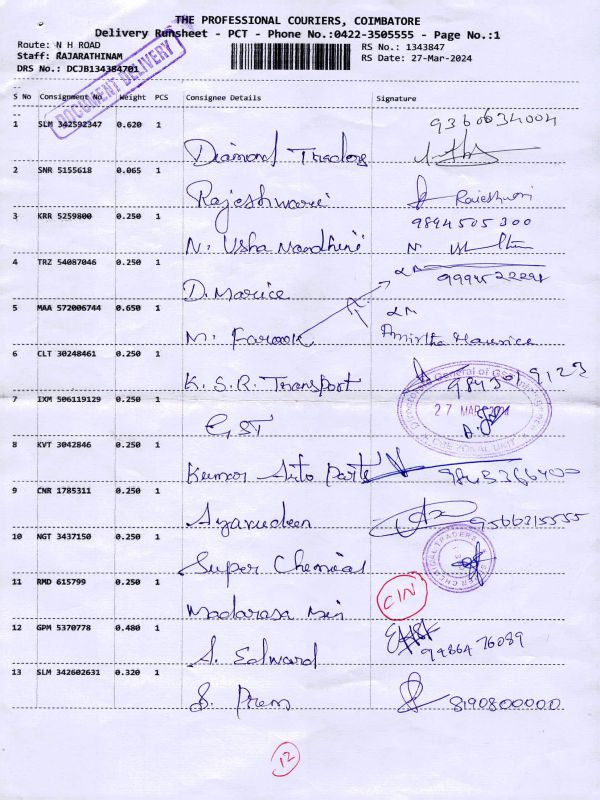 THE PROFESSIONAL COURIERS, COIMBATORE
Delivery Runsheet - PCT - Phone No.:0422-3505555 - Page No.:1
Route: N H ROAD
Staff: RAJARATHINAM
DRS No.: DCJB134384701
RS No.: 1343847
RS Date: 27-Mar-2024
DOCUMENT DELIVERY
S No Consignment No Weight PCS Consignee Details Signature
1 SLM 342592347 0.620 1 Diamond Traders 9360634004
2 SNR 5155618 0.065 1 Rajeshwari Rajeshwari
3 KRR 5259800 0.250 1 N. Usha Nandhini 9894505300
4 TRZ 54087046 0.250 1 D. Marice
5 MAA 572006744 0.650 1 M. Farook Amirtha Maurice
6 CLT 30248461 0.250 1 K. S. R. Transport
7 IXM 506119129 0.250 1 GST 27 MAR 2024
8 KVT 3042846 0.250 1 Kumar Auto Parts
9 CNR 1785311 0.250 1 Ayavudeen 9566315555
10 NGT 3437150 0.250 1 Super Chemical
11 RMD 615799 0.250 1 CIN
12 GPM 5370778 0.480 1 A. Edward 9486476089
13 SLM 342602631 0.320 1 S. Prem 8190800000
12